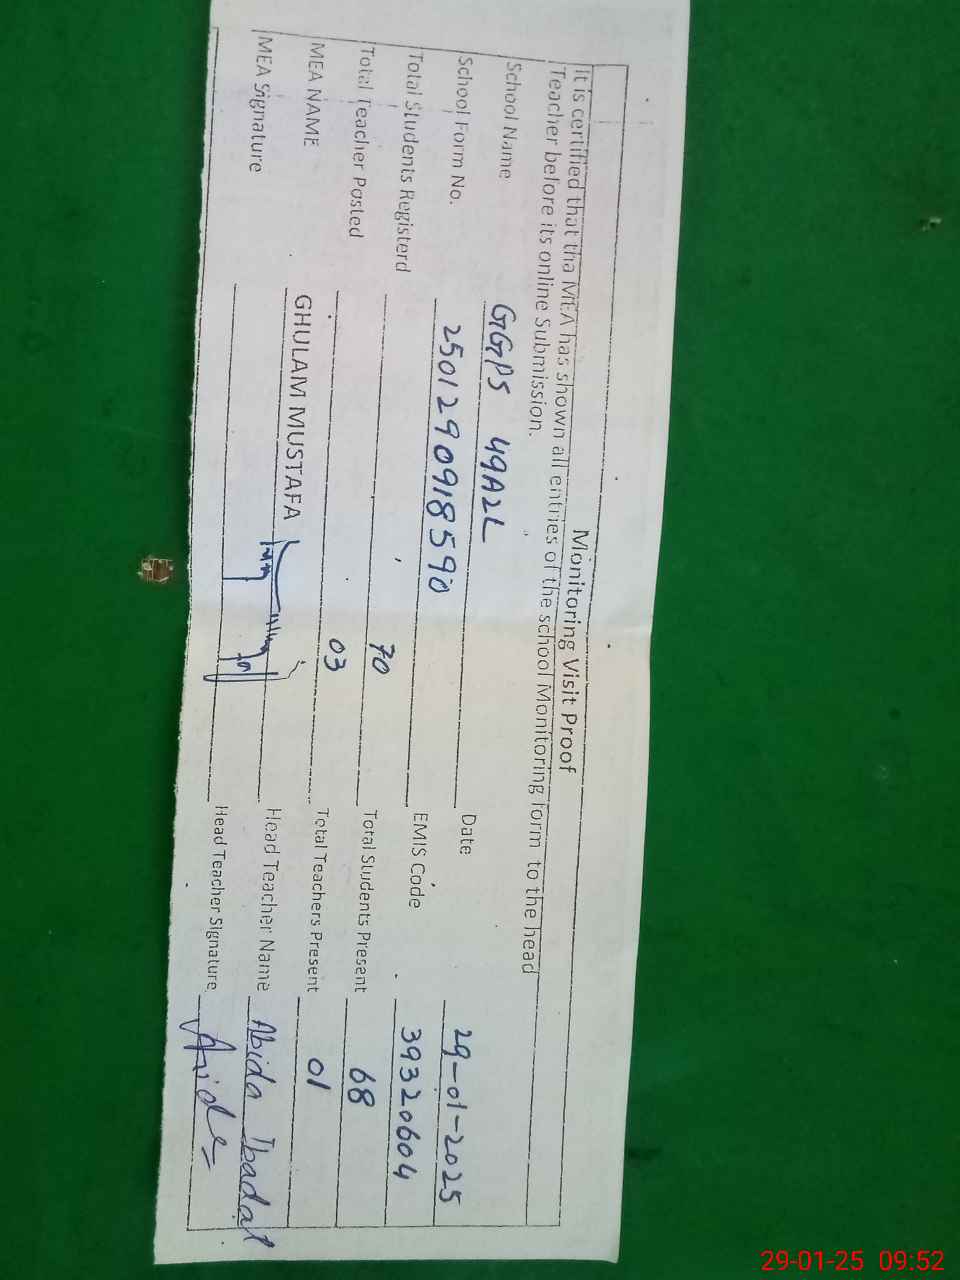 Monitoring Visit Proof
It is certified that tha MEA has shown all entries of the school Monitoring form to the head
Teacher before its online Submission.
School Name GGPS 49A2L Date 29-01-2025
School Form No. 250129091859 EMIS Code 39320604
Total Students Registerd 70 Total Students Present 68
Total Teacher Posted 03 Total Teachers Present 01
MEA NAME GHULAM MUSTAFA Head Teacher Name Abida Ibadat
MEA Signature Head Teacher Signature
29-01-25 09:52